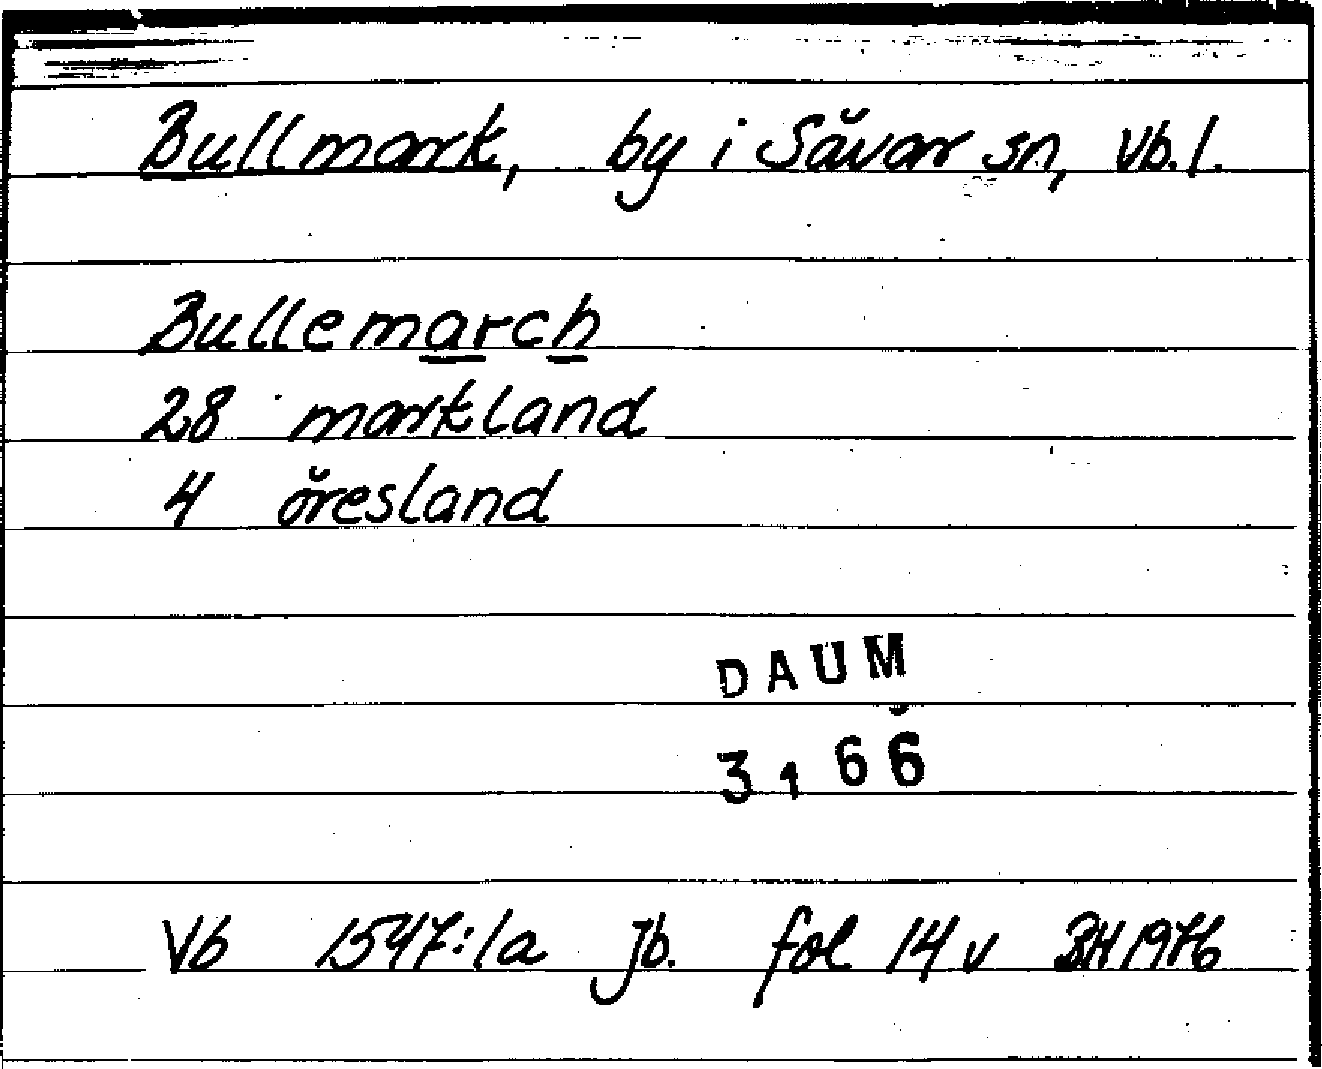 Bullmark, by i Sävar sn, Vb. l.
Bullemarch
28 markland
4 öresland
DAUM
3166
Vb 1547:1a jb. fol 14 v BH 1976